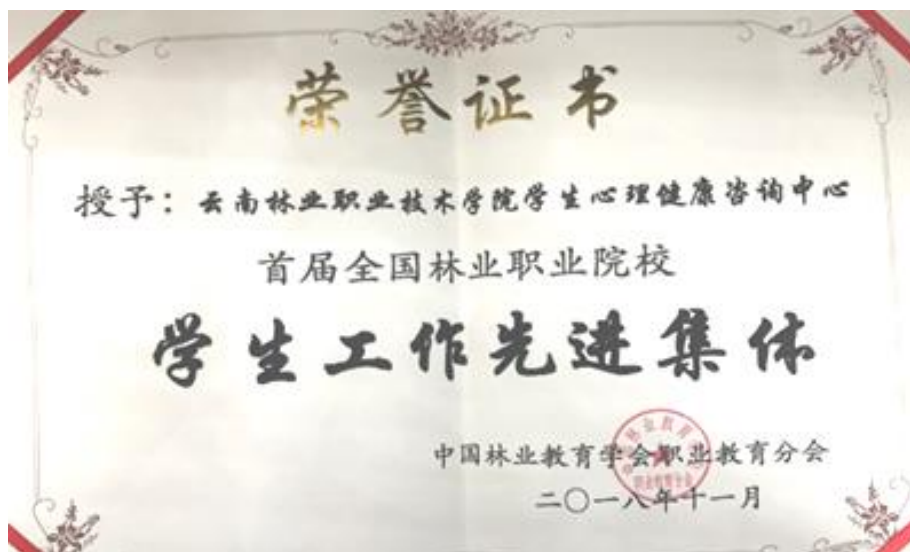 荣誉证书
授予：云南林业职业技术学院学生心理健康咨询中心
首届全国林业职业院校
学生工作先进集体
中国林业教育学会职业教育分会
二〇一八年十一月